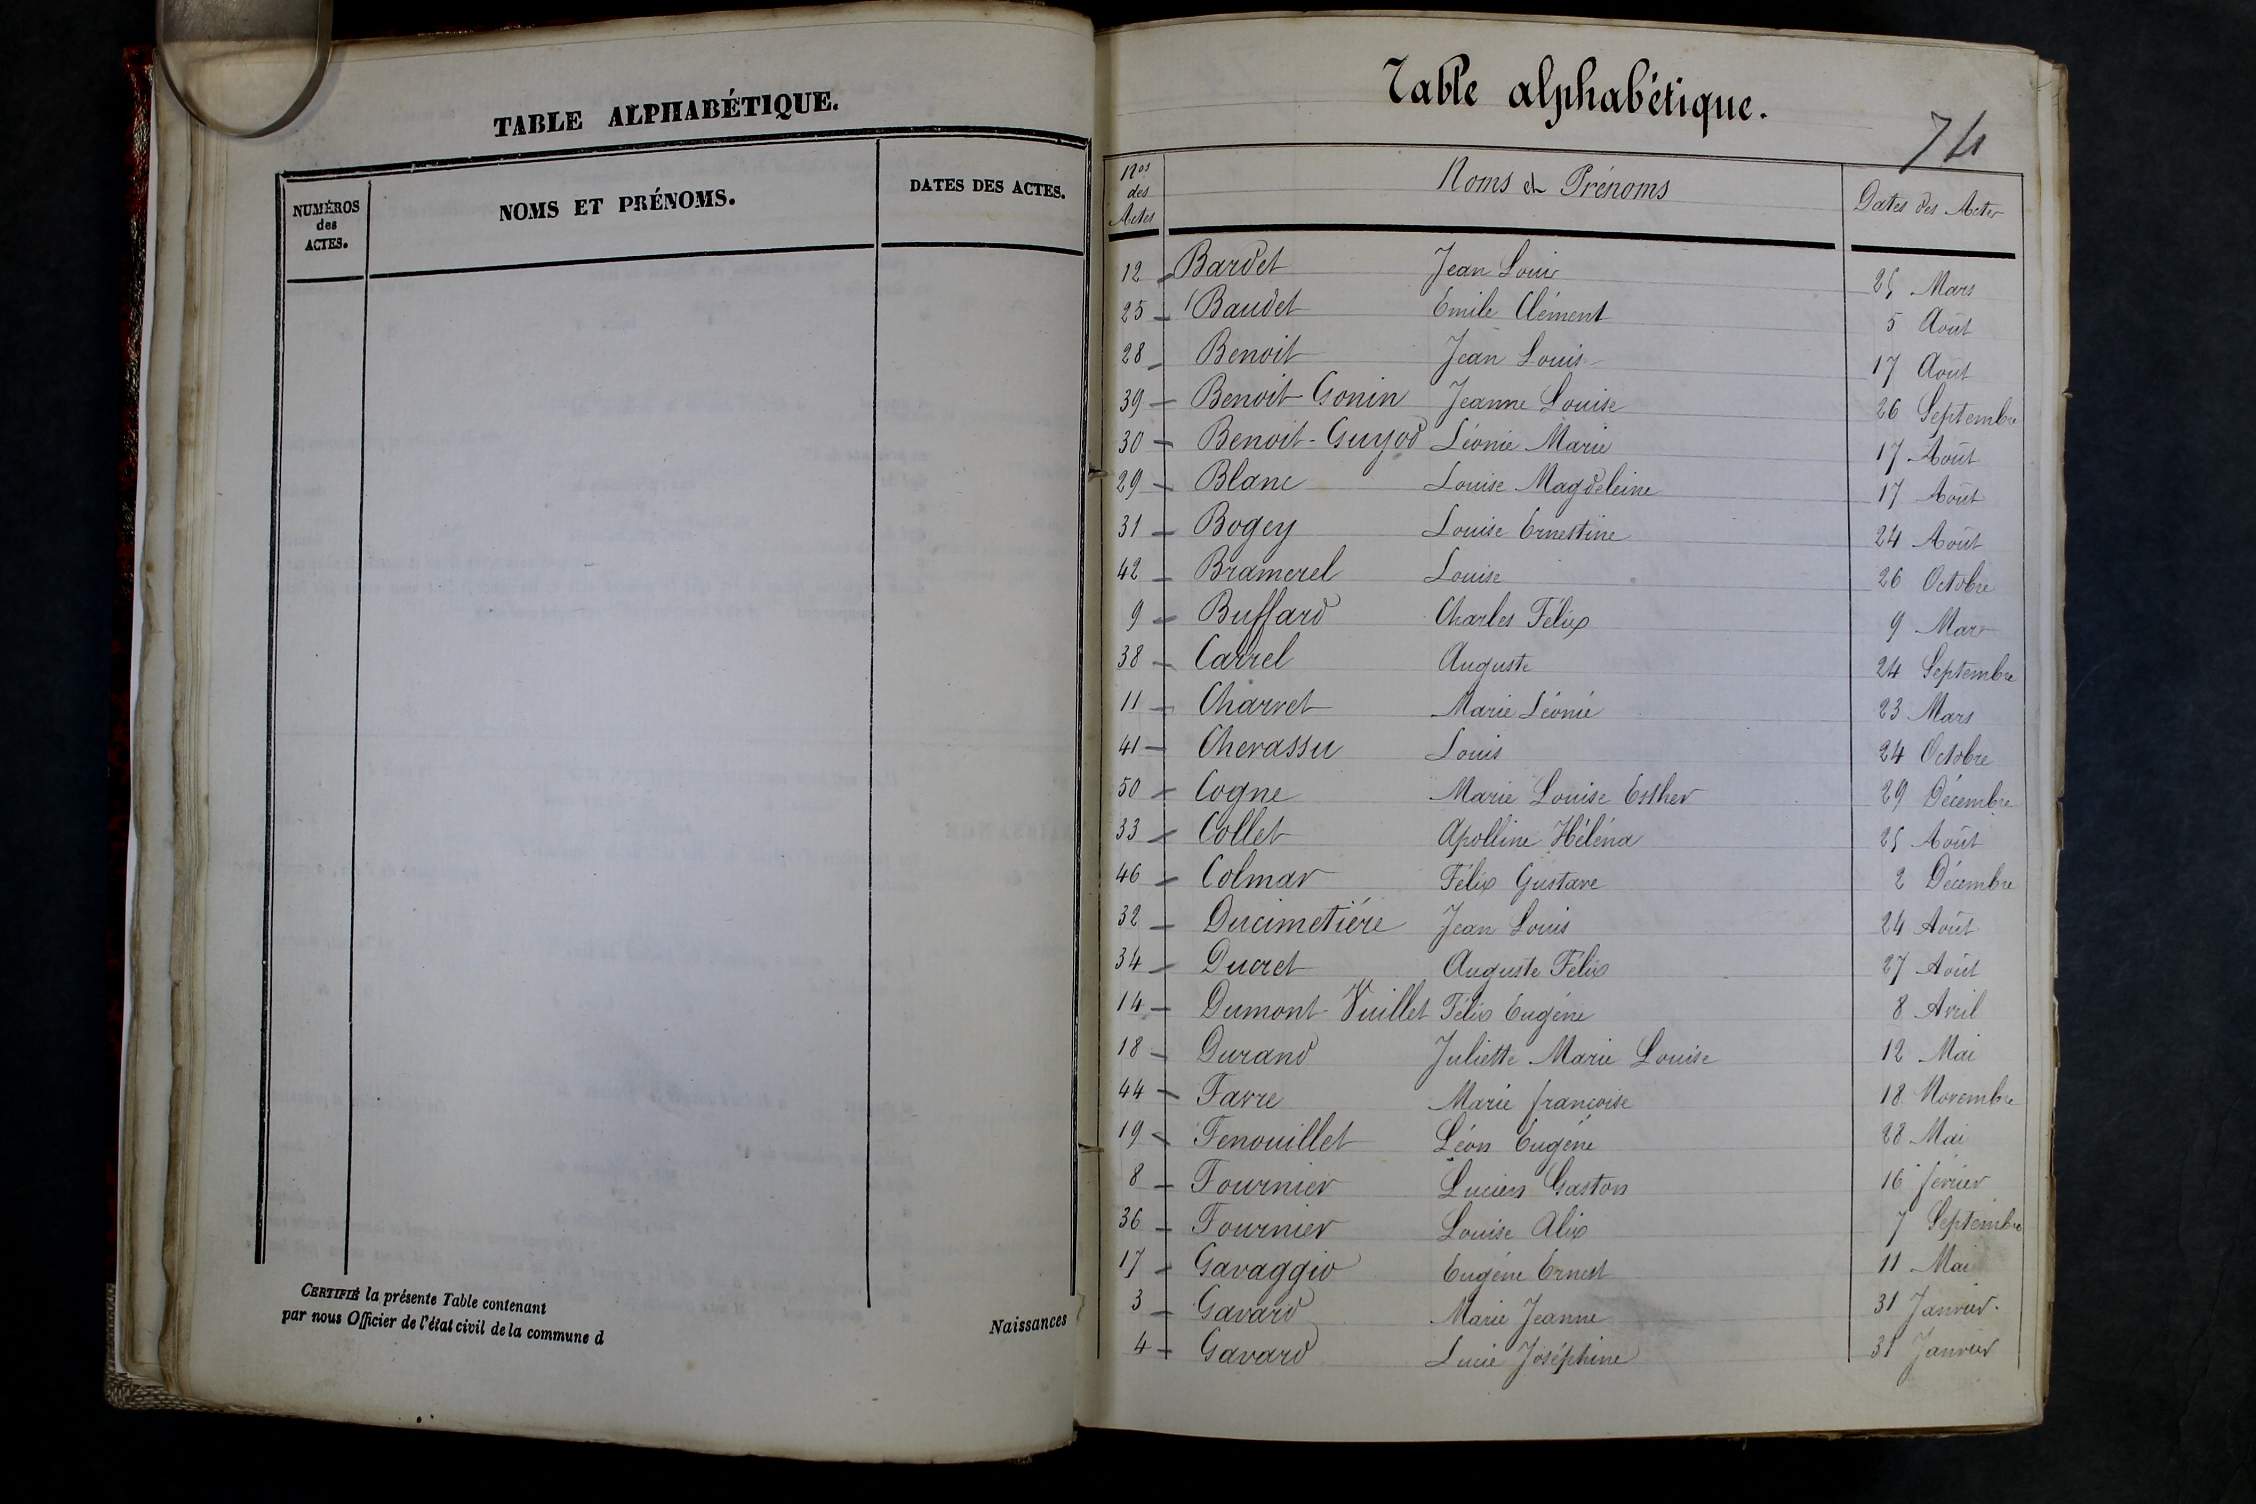 TABLE ALPHABÉTIQUE.
NUMÉROS des ACTES.
NOMS ET PRÉNOMS.
DATES DES ACTES.
CERTIFIÉ la présente Table contenant
Naissances
par nous Officier de l'état civil de la commune d
Table alphabétique.
74
Nos des Actes
Noms et Prénoms
Dates des Actes
12 Bardet Jean Louis 25 Mars
25 Baudet Emile Clément 5 Août
28 Benoit Jean Louis 17 Août
39 Benoit-Gonin Jeanne Louise 26 Septembre
30 Benoit-Guyod Léonie Marie 17 Août
29 Blanc Louise Magdeleine 17 Août
31 Bogey Louise Ernestine 24 Août
42 Bramerel Louise 26 Octobre
9 Buffard Charles Félix 9 Mars
38 Carrel Auguste 24 Septembre
11 Charvet Marie Léonie 23 Mars
41 Chevassu Louis 24 Octobre
50 Cogne Marie Louise Esther 29 Décembre
33 Collet Apolline Héléna 25 Août
46 Colmar Félix Gustave 2 Décembre
32 Ducimetiére Jean Louis 24 Août
34 Ducret Auguste Félix 27 Août
14 Dumont-Vuillet Félix Eugéne 8 Avril
18 Durand Juliette Marie Louise 12 Mai
44 Favre Marie françoise 18 Novembre
19 Fenouillet Léon Eugéne 28 Mai
8 Fournier Lucien Gaston 16 février
36 Fournier Louise Alix 7 Septembre
17 Gavaggio Eugéne Ernest 11 Mai
3 Gavard Marie Jeanne 31 Janvier.
4 Gavard Lucie Joséphine 31 Janvier